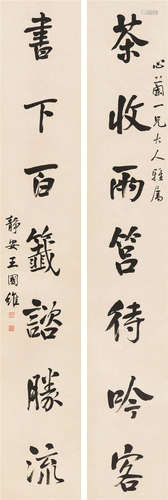 心蘭一兄大人雅属
茶收雨筥待吟客
書下百籤諮勝流
靜安王國維